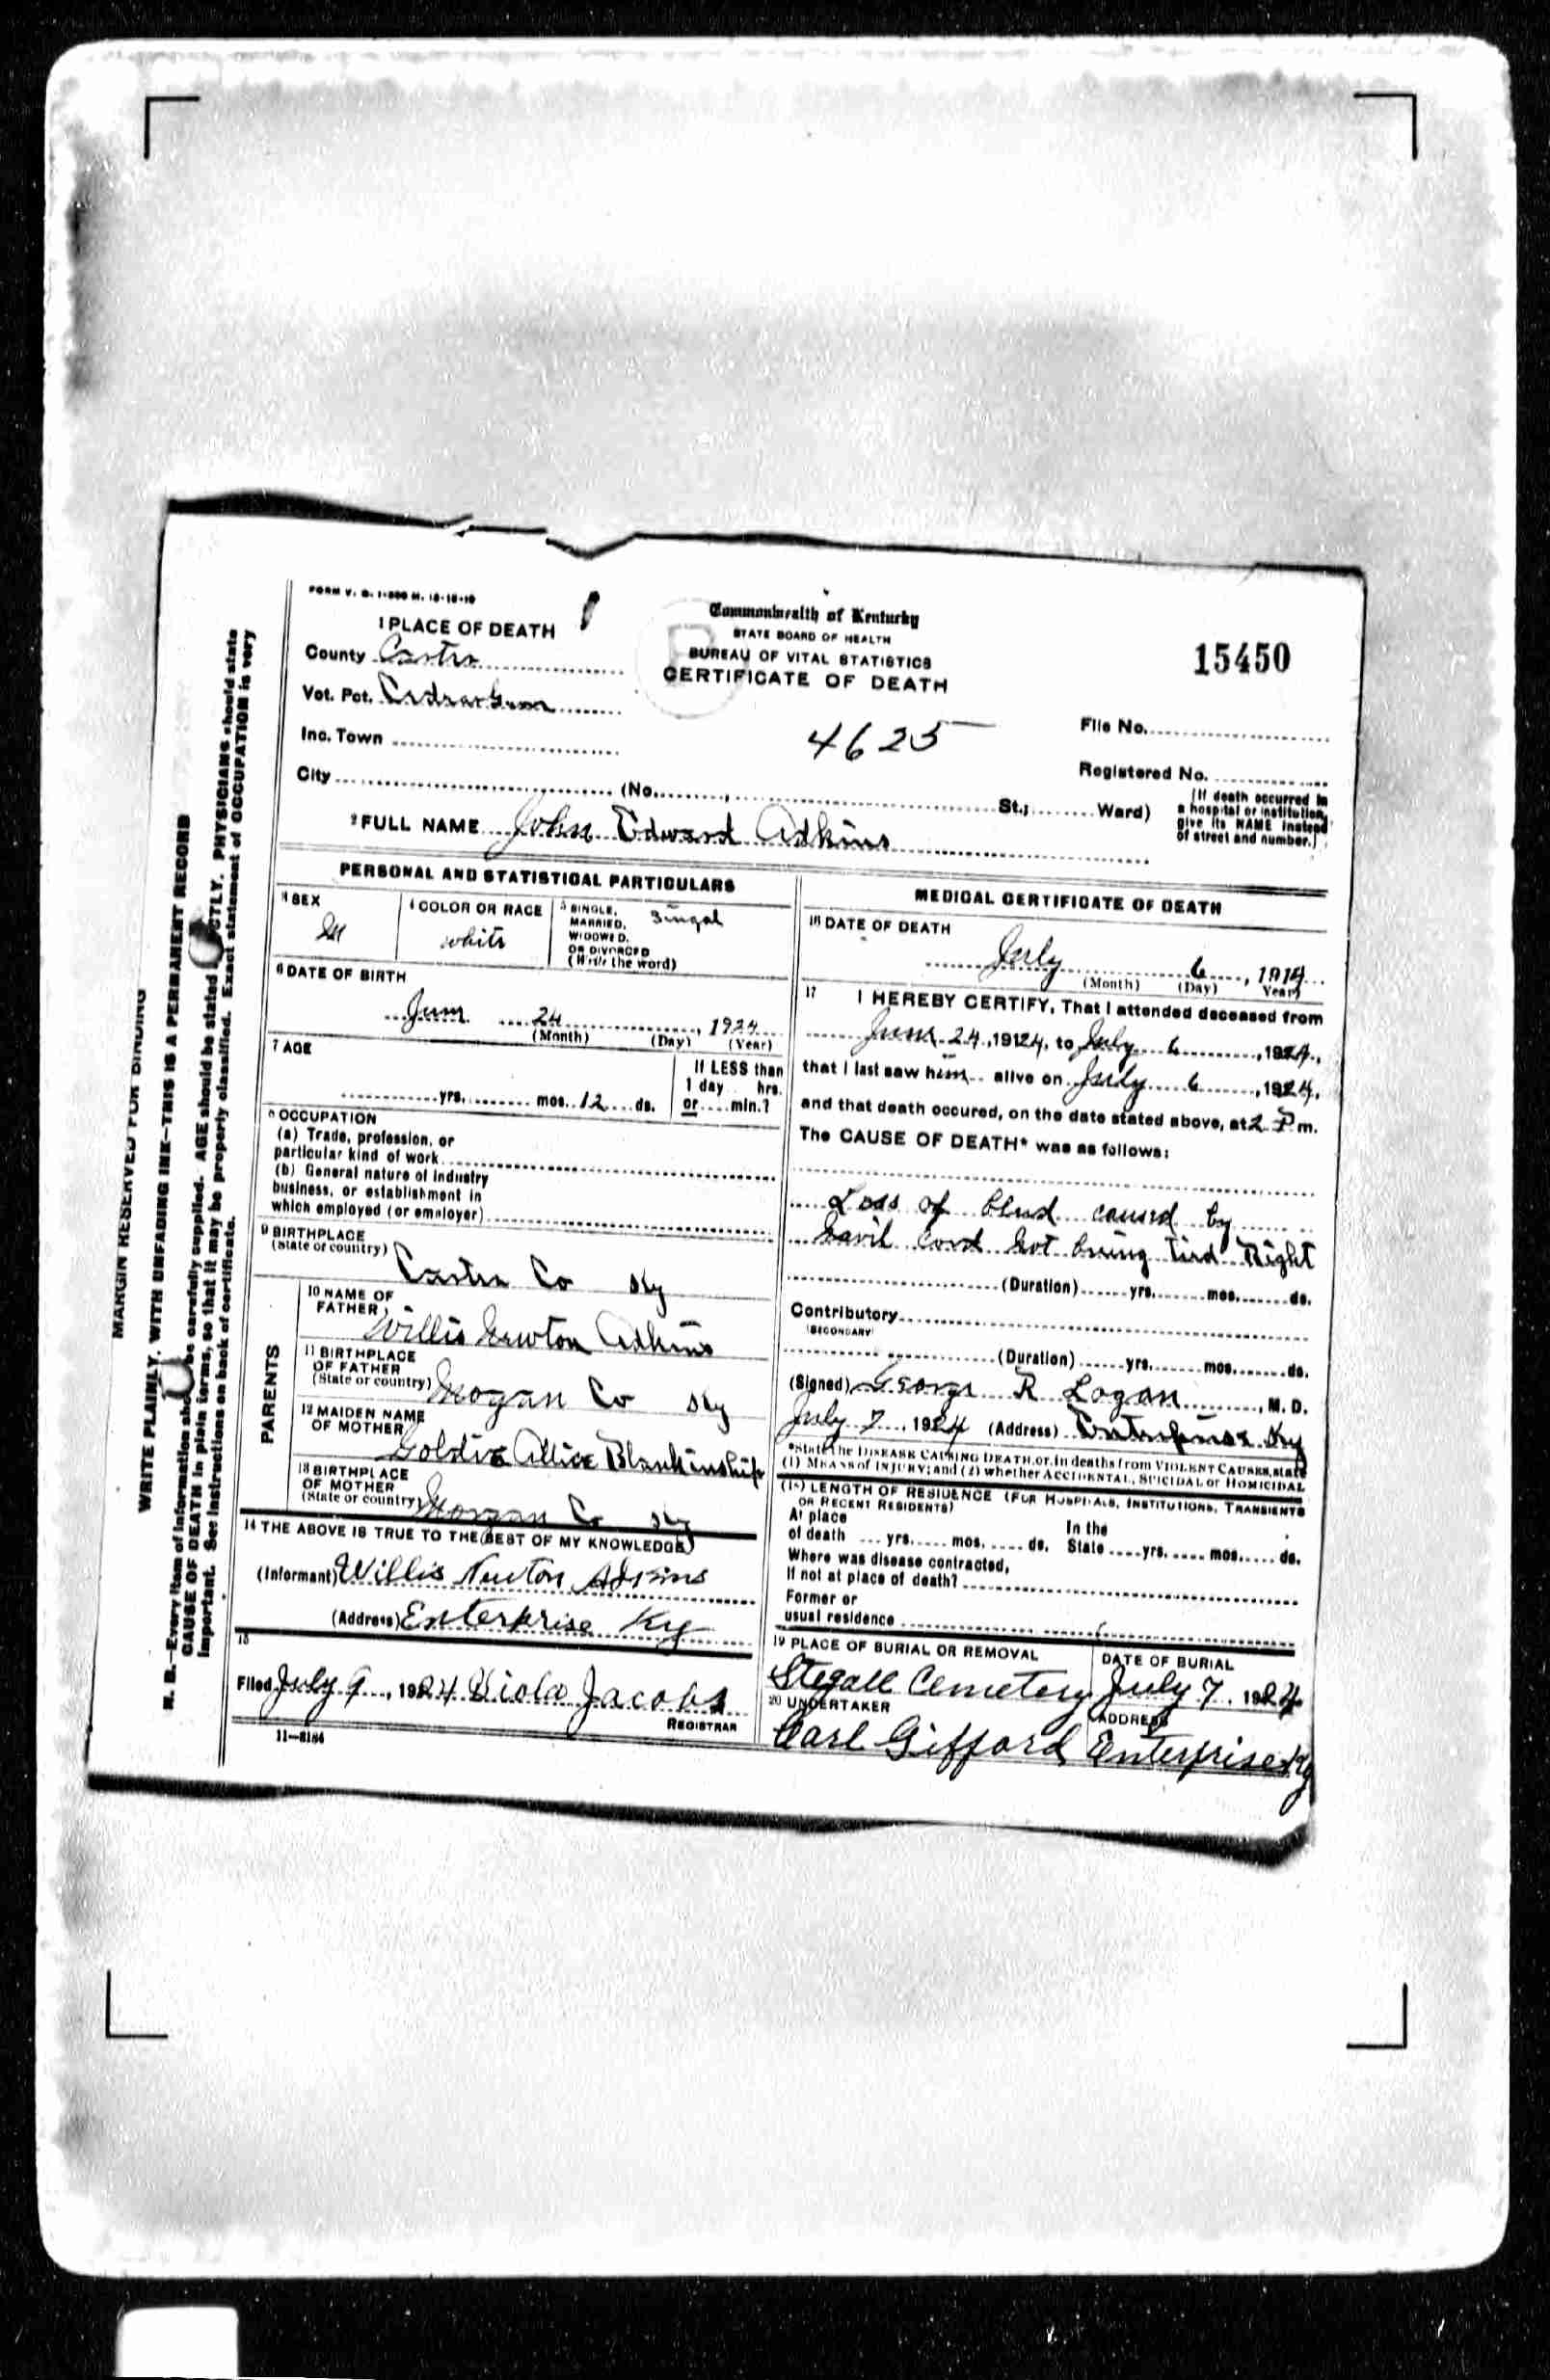 FORM V. S. 1-500 M. 12-18-19
1 PLACE OF DEATH
County Carter
Vot. Pct.
Inc. Town
City (No. , St.; Ward)
Commonwealth of Kentucky
STATE BOARD OF HEALTH
BUREAU OF VITAL STATISTICS
CERTIFICATE OF DEATH
4625
15450
File No.
Registered No.
[If death occurred in
a hospital or institution,
give its NAME instead
of street and number.]
2 FULL NAME John Edward Adkins
PERSONAL AND STATISTICAL PARTICULARS
3 SEX
M
4 COLOR OR RACE
white
5 SINGLE,
MARRIED,
WIDOWED,
OR DIVORCED
(Write the word)
Singal
6 DATE OF BIRTH
June 24, 1924
(Month) (Day) (Year)
7 AGE
yrs. mos. 12 ds.
If LESS than
1 day hrs.
or min.?
8 OCCUPATION
(a) Trade, profession, or
particular kind of work
(b) General nature of industry
business, or establishment in
which employed (or employer)
9 BIRTHPLACE
(State or country)
Carter Co Ky
PARENTS
10 NAME OF
FATHER
Willis Newton Adkins
11 BIRTHPLACE
OF FATHER
(State or country)
Mogan Co Ky
12 MAIDEN NAME
OF MOTHER
Goldie Allice Blankinship
13 BIRTHPLACE
OF MOTHER
(State or country)
Morgan Co Ky
14 THE ABOVE IS TRUE TO THE BEST OF MY KNOWLEDGE
(Informant) Willis Newton Adkins
(Address) Enterprise Ky
15
Filed July 9, 1924 Viola Jacobs
REGISTRAR
11-3184
MEDICAL CERTIFICATE OF DEATH
16 DATE OF DEATH
July 6, 1924
(Month) (Day) Year)
17 I HEREBY CERTIFY, That I attended deceased from
June 24, 19124, to July 6, 1924,
that I last saw him alive on July 6, 1924,
and that death occured, on the date stated above, at 2 P m.
The CAUSE OF DEATH* was as follows:
Loss of blud caused by
Navil Cord Not being tied Right
(Duration) yrs. mos. ds.
Contributory
(SECONDARY)
(Duration) yrs. mos. ds.
(Signed) George R Logan, M. D.
July 7, 1924 (Address) Enterprise Ky
*State the DISEASE CAUSING DEATH, or, in deaths from VIOLENT CAUSES, state
(1) MEANS of INJURY; and (2) whether ACCIDENTAL, SUICIDAL or HOMICIDAL
(18) LENGTH OF RESIDENCE (FOR HOSPITALS, INSTITUTIONS, TRANSIENTS
OR RECENT RESIDENTS)
At place In the
of death yrs. mos. ds. State yrs. mos. ds.
Where was disease contracted,
If not at place of death?
Former or
usual residence
19 PLACE OF BURIAL OR REMOVAL
Stegall Cemetery
DATE OF BURIAL
July 7, 1924
20 UNDERTAKER
Carl Gifford
ADDRESS
Enterprise Ky
MARGIN RESERVED FOR BINDING
WRITE PLAINLY, WITH UNFADING INK—THIS IS A PERMANENT RECORD
N. B.—Every item of information should be carefully supplied. AGE should be stated EXACTLY. PHYSICIANS should state
CAUSE OF DEATH in plain terms, so that it may be properly classified. Exact statement of OCCUPATION is very
important. See instructions on back of certificate.